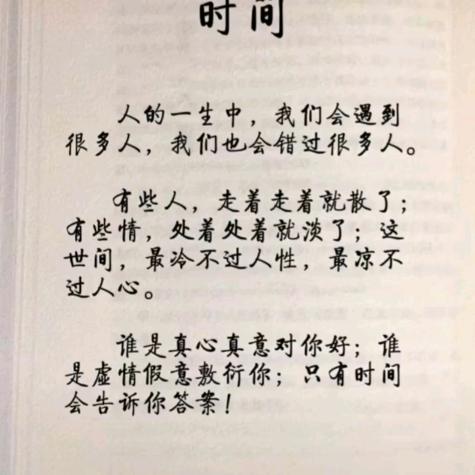 时间
人的一生中，我们会遇到
很多人，我们也会错过很多人。
有些人，走着走着就散了；
有些情，处着处着就淡了；这
世间，最冷不过人性，最凉不
过人心。
谁是真心真意对你好；谁
是虚情假意敷衍你；只有时间
会告诉你答案！